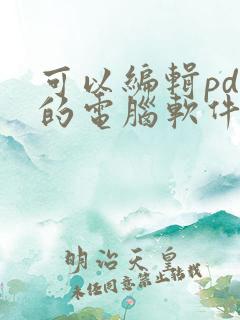 可以編輯pd
的電腦軟件
明治天皇
未任同意禁止轉載